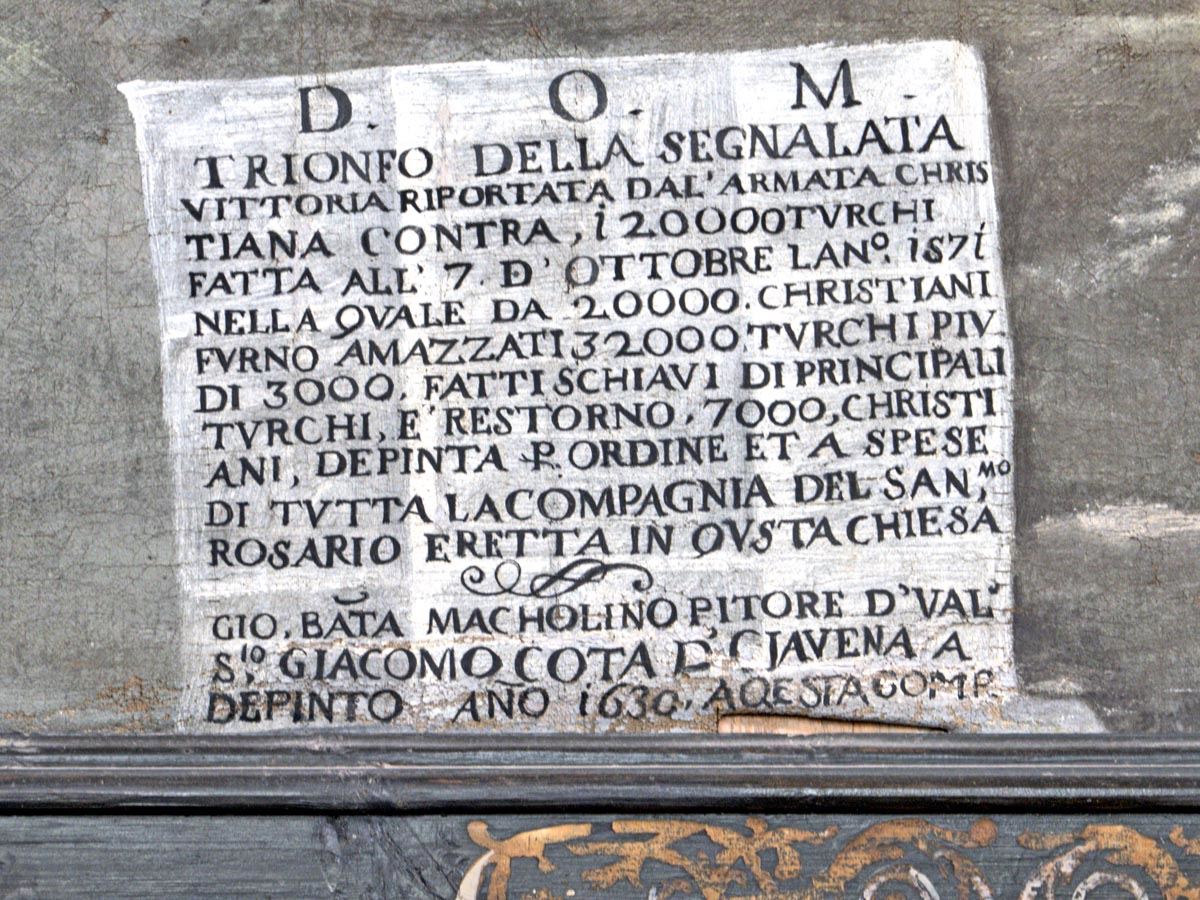 D. O. M.
TRIONFO DELLA SEGNALATA
VITTORIA RIPORTATA DAL' ARMATA CHRIS
TIANA CONTRA, i 20000 TVRCHI
FATTA ALL' 7. D' OTTOBRE LANº. i57i
NELLA QVALE DA 20000. CHRISTIANI
FVRNO AMAZZATI 32000. TVRCHI PIV
DI 3000. FATTI SCHIAVI DI PRINCIPALI
TVRCHI, E' RESTORNO, 7000, CHRISTI
ANI, DEPINTA P. ORDINE ET A SPESE
DI TVTTA LA COMPAGNIA DEL SAN,ᴹᴼ
ROSARIO ERETTA IN QVSTA CHIESA
GIO, BATA MACHOLINO PITORE D' VAL'
S,ⁱᵒ GIACOMO COTA D' CIAVENA A
DEPINTO AÑO i630, AQESTA COMP.